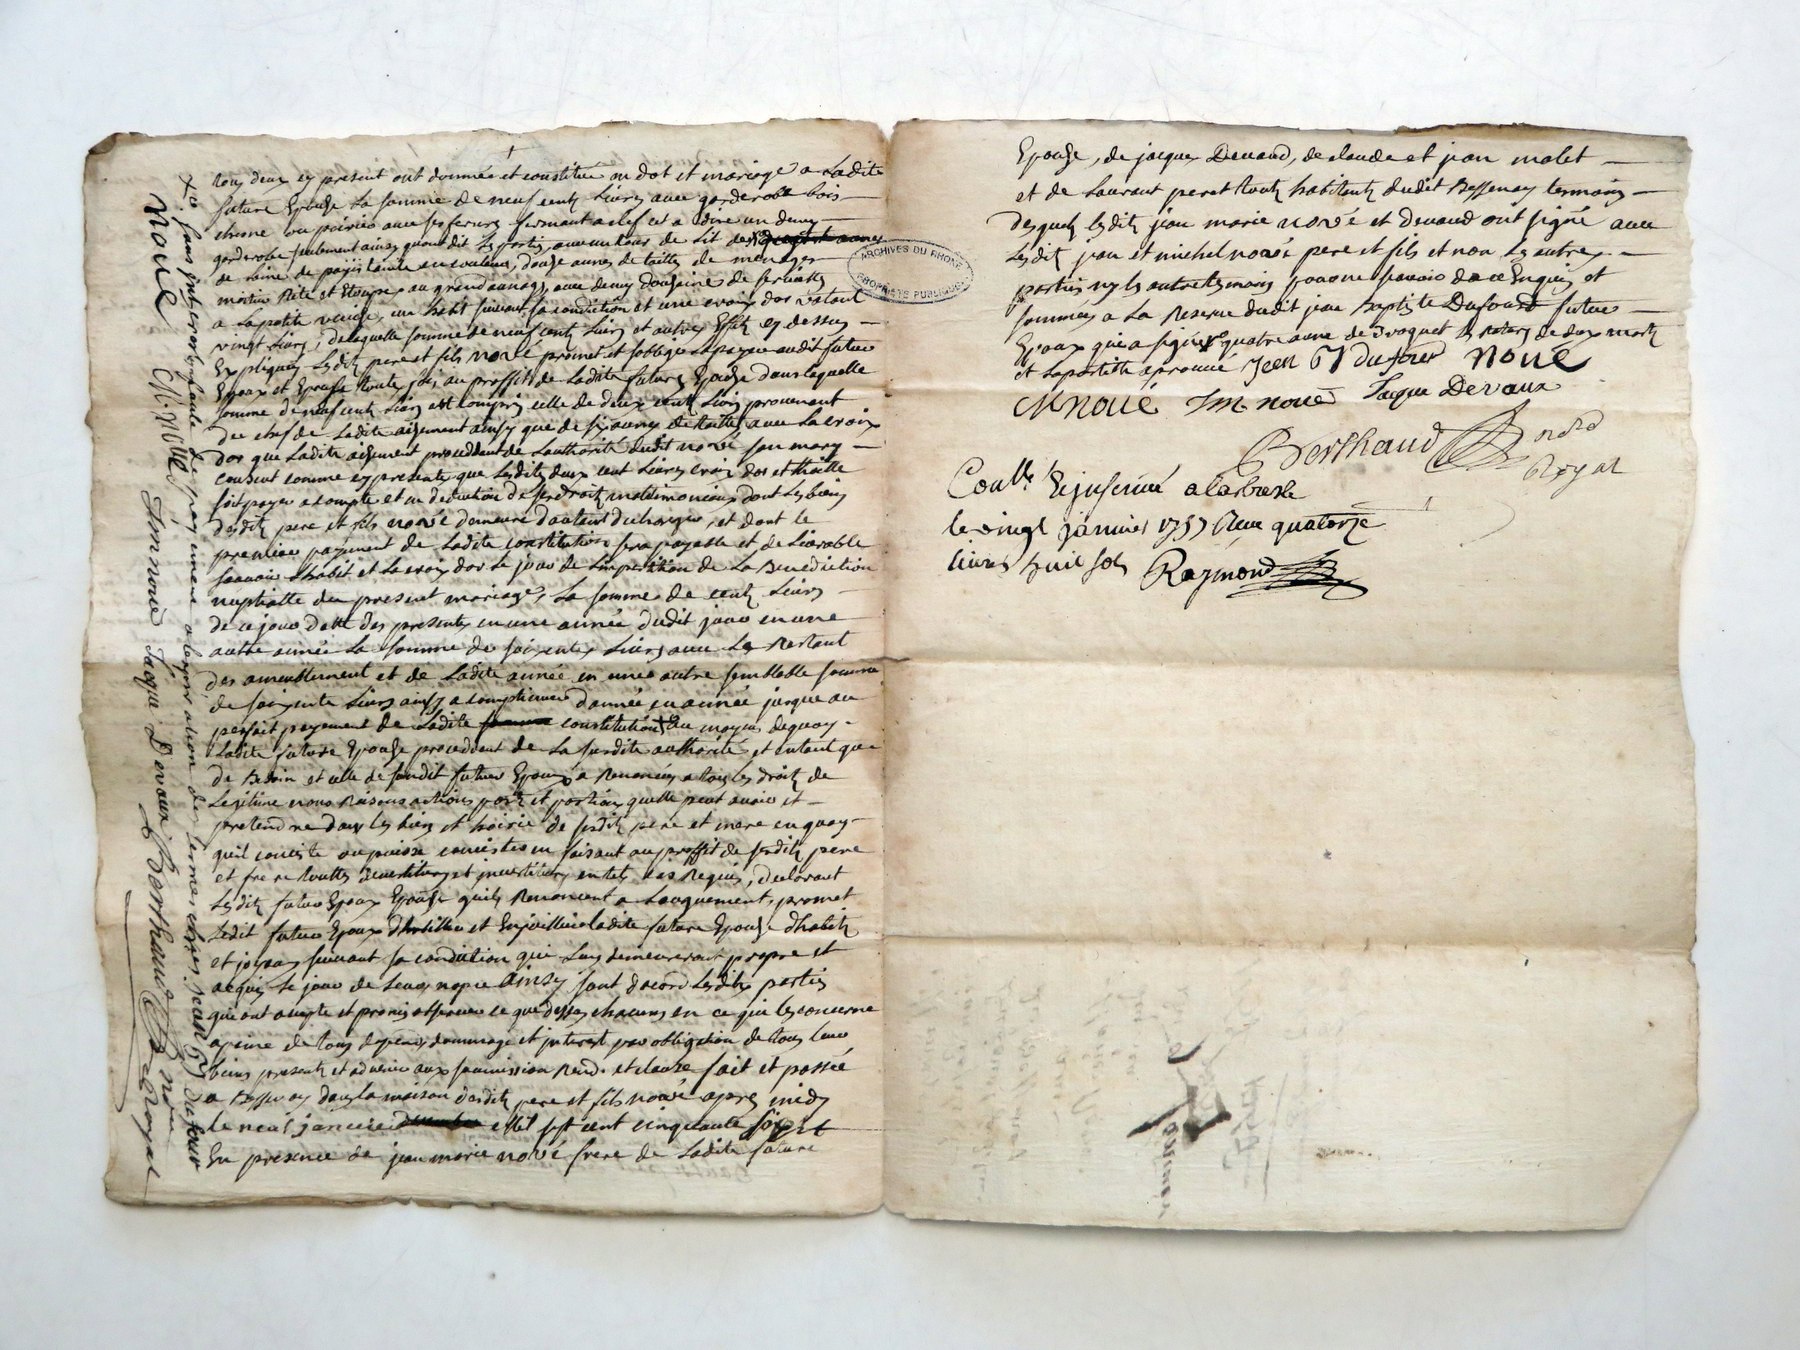 tous deux cy present ont donnée et constitué en dot et mariage a Ladite
future Epouse La somme de neuf cents Livres avec garderobe bois
chesne ou poirier avec ses ferrures fermant a clef cest a dire un demy
garderobe seulement ainsy quont dit Les partis, avec un tour de Lit
de laine de païis taint en couleur, douze aunes de toilles de menages
moitié Rite et Etoupes au grand aunage, avec demy douzaine de serviettes
a La petite venise, un habit suivant sa condition et une croix dor valant
vingt Livres, de laquelle somme de neuf cents Livres et autres Effets cy dessus
Expliqués Lesdits pere et fils noué promet et soblige a payer audit futur
Epoux et Epouse toutes fois, au proffit de Ladite future Epouse dans laquelle
somme de neuf cents Livres est compris celle de deux cent Livres provenant
du chef de Ladite aigement ainsy que de six aunes de toilles avec La croix
dor que Ladite aigement proceddant de Lauthorité dudit noué son mary
consent comme cy presente que Lesdits deux cent Livres croix dor et thoille
soit payer a compte et en deduction de ses droits matrimoniaux dont Les biens
desdits pere et fils noué demeure dautant decharges, et dont le
premier payement de Ladite constitution sera payable et delivrable
scavoir Lhabit et La croix dor Le jour de Limpartition de La Benediction
nuptialle du present mariage, La somme de cents Livres
de ce jour datte des presentes en une année dudit jour en une
autre année La somme de soixentes Livres avec Le Restant
des ameublement et de Ladite année en une autre semblable somme
de soixente Livres ainsy a comptinuer dannée en année jusque au
parfait payement de Ladite constitution + Au moyen dequoy
Ladite future Epouse procedant de La susdite authorité et entant que
de Besoin et celle de sondit futur Epoux a Renoncée a tous les droits de
Legitime noms Raisons actions parts et portions quelle peut avoir et
pretendre dans les biens et hoirie de sesdits pere et mere en quoy
quil consiste ou puisse consister en faisant au proffit de sesdits pere
et frere touttes devestitures et jnvestitures en tels cas Requis, declarant
Lesdits futur Epoux Epouse quils Renoncent a Laugument, promet
Ledit futur Epoux dhabiller et Enjoiller Ladite future Epouse dhabits
et joyaux suivant sa condition qui Luy demeureront propre et
acquis Le jour de Leur nopce Ainsy sont dacord Lesdittes parties
qui ont accepté et promis observer ce que dessus chacuns en ce qui Les concerne
a peine de tous depens dommage et jnterest par obligation de tous Leur
biens presents et advenir aux soumission Rend. et clauze fait et passée
a Bessenay dans La maison desdits pere et fils noué apres midy
le neuf janvier mil sept cent cinquante sept
En presence de jean marie noué frere de Ladite future
+ sans jnterest faute de payement a leschéance des termes
Noué CM Noué Jm noué Jaque Devaux Berthaud no.re Royal
jean Bt Dufour
Epouse, de jacques Devaud, de claude et jean molet
et de Laurant peret touts habitants dudit Bessenay temoins
desquels Lesdits jean marie noué et Devaud ont signé avec
Lesdits jean et michel noué pere et fils et non Les autres
parties ny les autres temoins pour ne scavoir de ce Enquis et
sommés a La Reserve dudit jean Baptiste Dufour futur
Epoux qui a signé quatre aune de
et La postille aprouvé Jean Bt dufour Noué
CM noué Jm noué Jaque Devaux
Berthaud no.re
Royal
Con.lle & jnsinué a Larbresle
le vingt janvier 1757 Reçu quatorze
livres huit sols Raymond
ARCHIVES DU RHONE
PROPRIETE PUBLIQUE